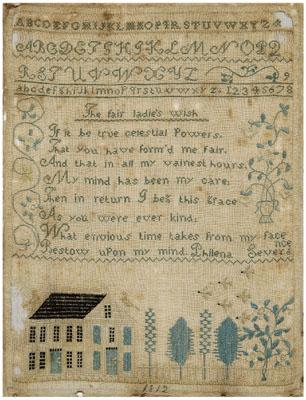 ABCDEFGHIJKLMNOPQRSTUVWXYZ&
ABCDEFGHIJKLMNOPQ
RSTUVWXYZ
abcdefghijklmnopqrstuvwxyz12345678
9
The fair ladie's wish
If it be true celestial Powers.
That you have form'd me fair.
And that in all my vainest hours.
My mind has been my care:
Then in return I beg this grace
As you were ever kind:
What envious time takes from my face
Bestow upon my mind. Philena Severa
nce
1812